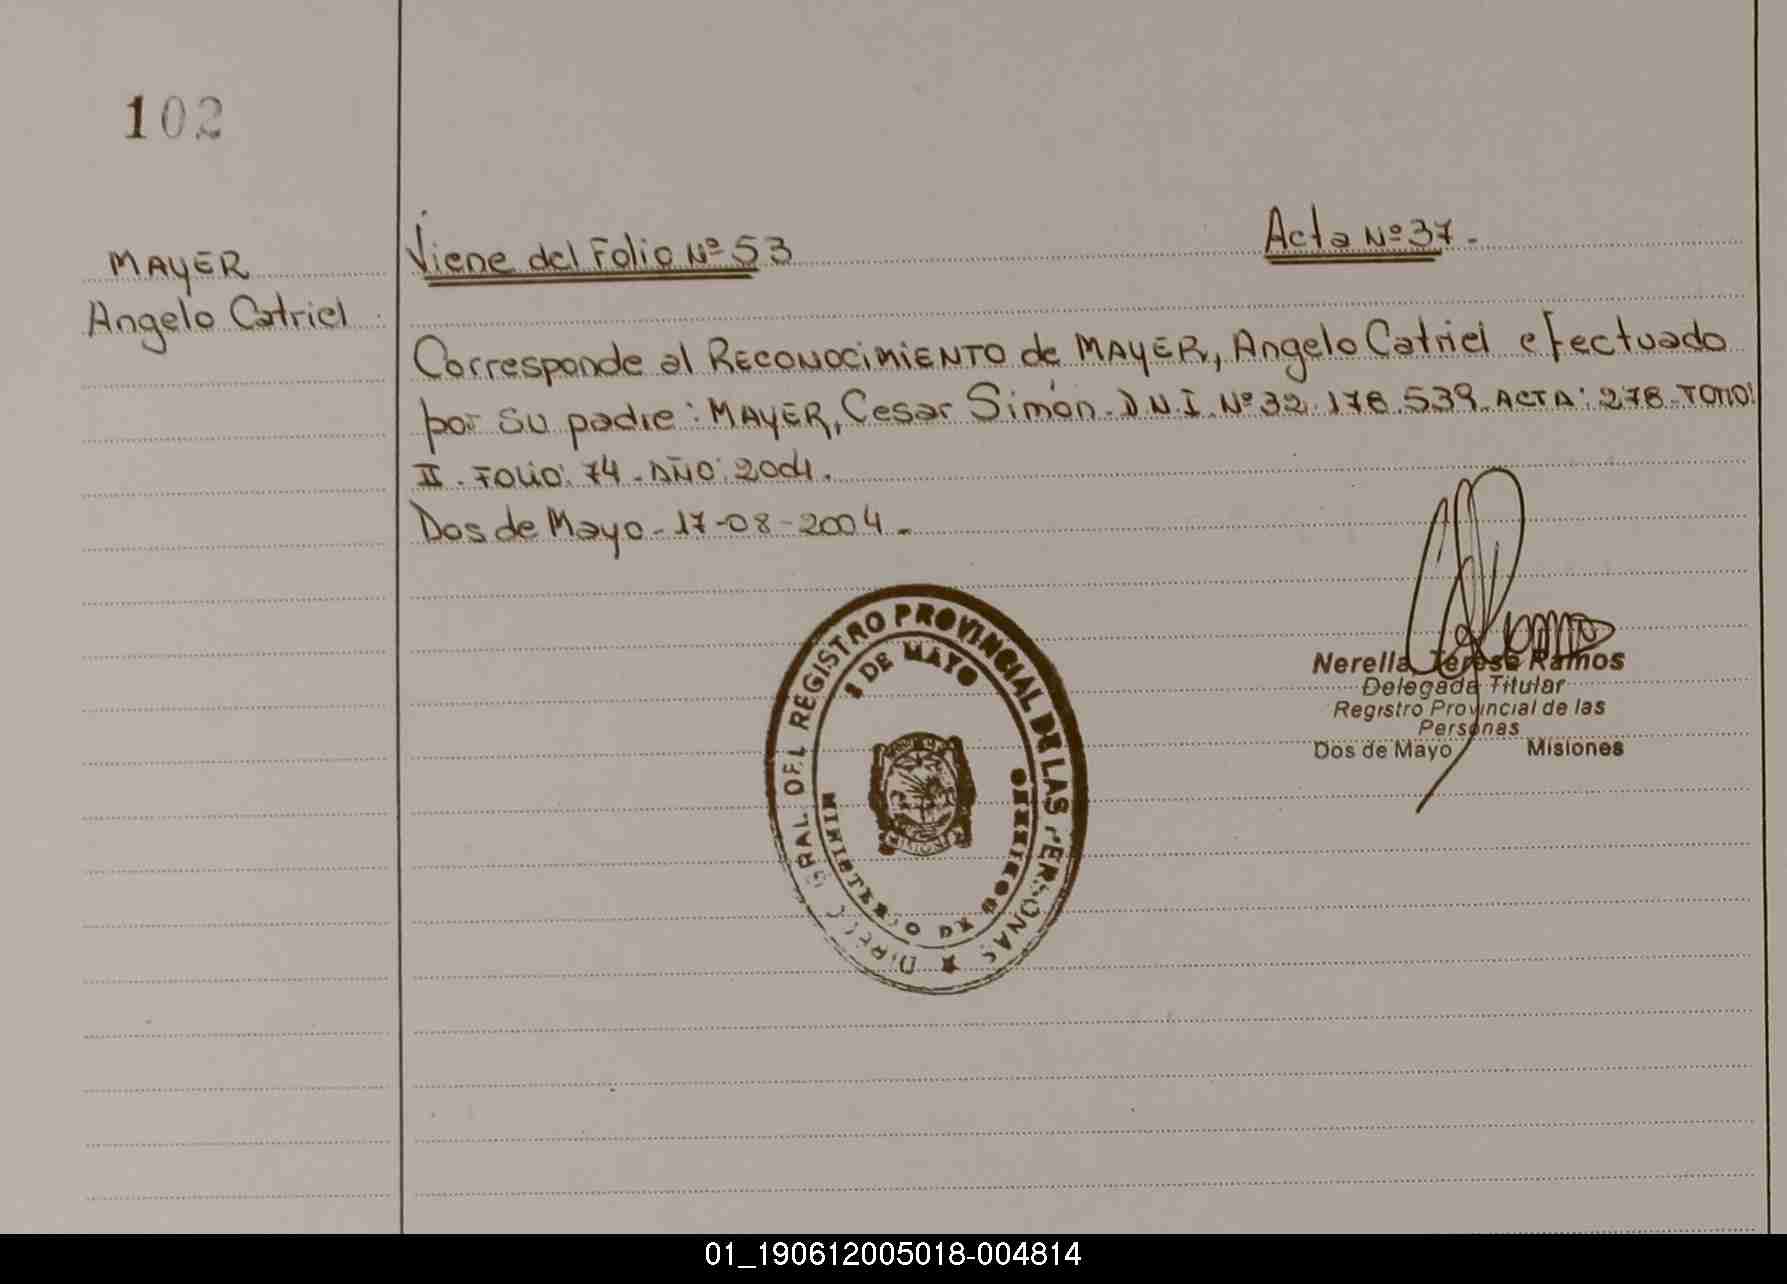 102
MAYER
Angelo Catriel
Viene del Folio Nº 53
Acta Nº 37.
Corresponde al RECONOCIMIENTO de MAYER, Angelo Catriel efectuado
por su padre: MAYER, Cesar Simón. D.N.I. Nº 32.178.539. ACTA: 278. TOMO:
II. FOLIO: 74. AÑO: 2004.
Dos de Mayo - 17-08-2004.
DIREC. GRAL. DEL REGISTRO PROVINCIAL DE LAS PERSONAS
2 DE MAYO
MINISTERIO DE GOBIERNO
Nerella Teresa Ramos
Delegada Titular
Registro Provincial de las
Personas
Dos de Mayo Misiones
01_190612005018-004814